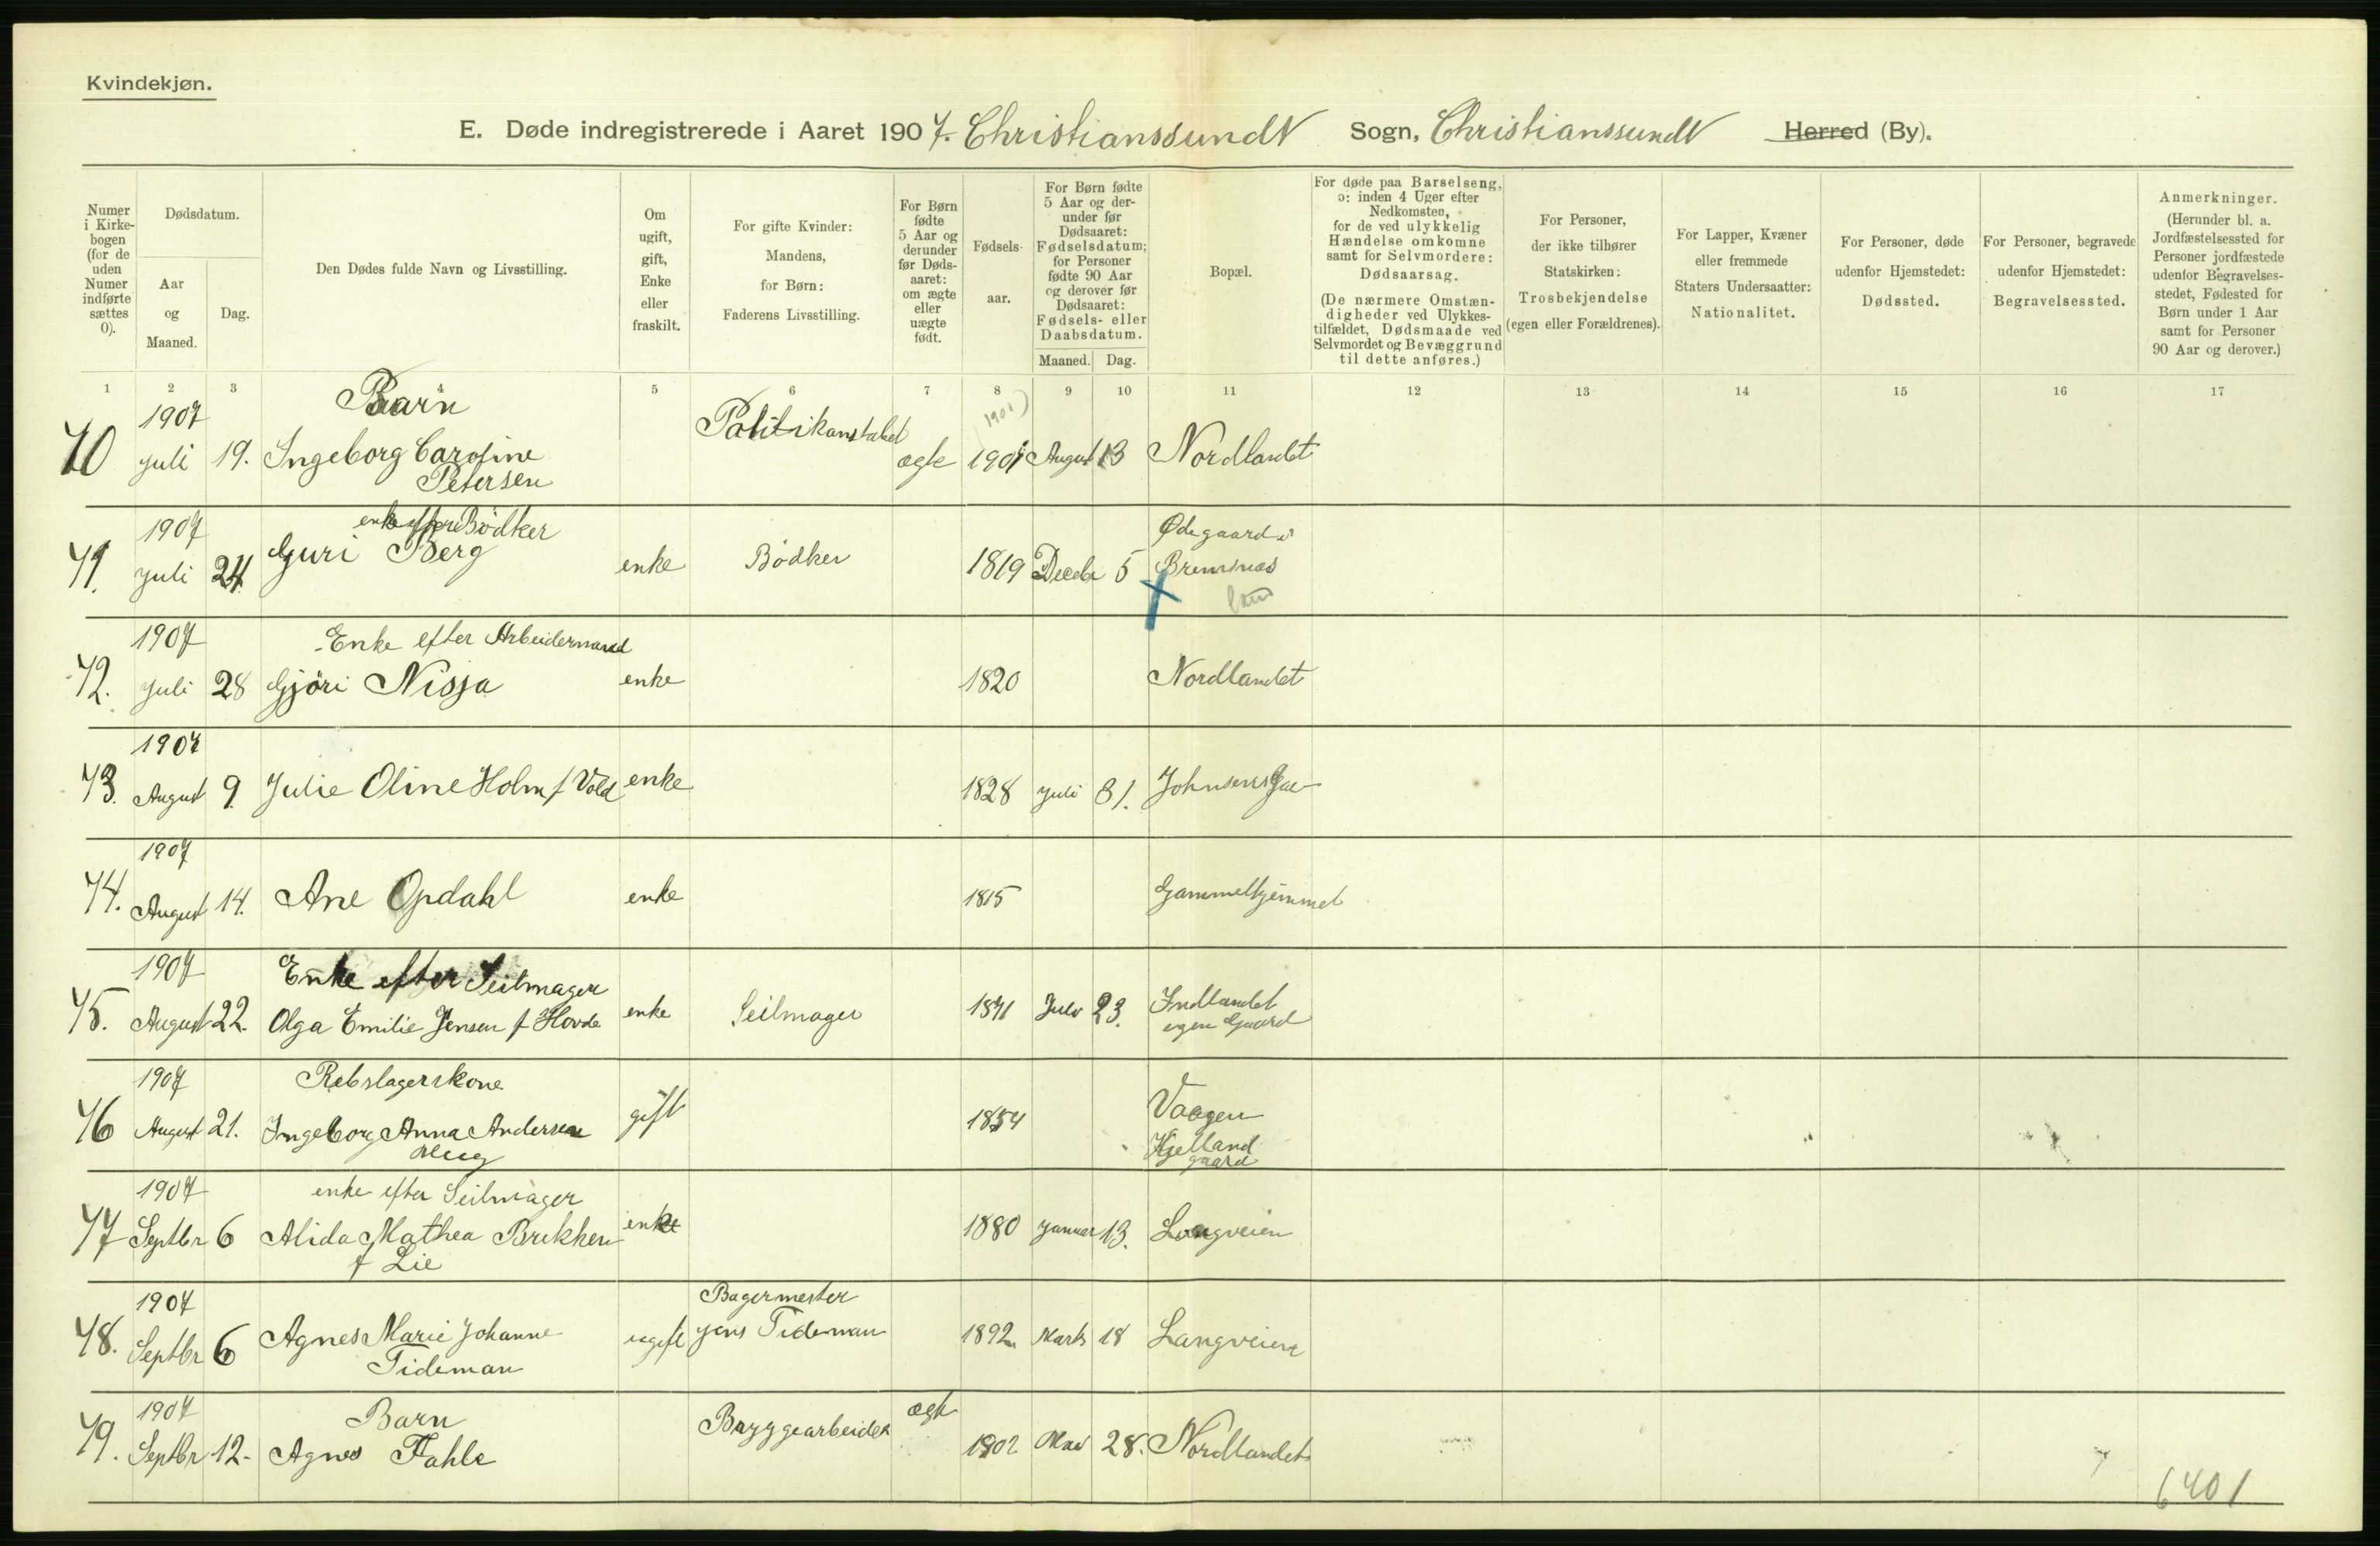 Kvindekjøn.
E. Døde indregistrerede i Aaret 1907. Christianssund Sogn, Christianssund Herred (By).
Numer i Kirkebogen (for de uden Numer indførte sættes 0).
Dødsdatum.
Aar og Maaned.
Dag.
Den Dødes fulde Navn og Livsstilling.
Om ugift, gift, Enke eller fraskilt.
For gifte Kvinder: Mandens, for Børn: Faderens Livsstilling.
For Børn fødte 5 Aar og derunder før Dødsaaret: om ægte eller uægte født.
Fødselsaar.
For Børn fødte 5 Aar og derunder før Dødsaaret: Fødselsdatum; for Personer fødte 90 Aar og derover før Dødsaaret: Fødsels- eller Daabsdatum.
Maaned. Dag.
Bopæl.
For døde paa Barselseng, ɔ: inden 4 Uger efter Nedkomsten, for de ved ulykkelig Hændelse omkomne samt for Selvmordere: Dødsaarsag.
(De nærmere Omstændigheder ved Ulykkestilfældet, Dødsmaade ved Selvmordet og Bevæggrund til dette anføres.)
For Personer, der ikke tilhører Statskirken: Trosbekjendelse (egen eller Forældrenes).
For Lapper, Kvæner eller fremmede Staters Undersaatter: Nationalitet.
For Personer, døde udenfor Hjemstedet: Dødssted.
For Personer, begravede udenfor Hjemstedet: Begravelsessted.
Anmerkninger.
(Herunder bl. a. Jordfæstelsessted for Personer jordfæstede udenfor Begravelsesstedet, Fødested for Børn under 1 Aar samt for Personer 90 Aar og derover.)
1 2 3 4 5 6 7 8 9 10 11 12 13 14 15 16 17
1907 Barn Politikonstabel
70 Juli 19. Ingeborg Caroline ægte 1901 August 13 Nordlandet
Petersen
1907 enke efter Bödker Ødegaard
71. Juli 24 Guri Berg enke Bödker 1819 Decebr 5 Bremsnæs
1907 Enke efter Arbeidermand
72. Juli 28 Gjöri Nisja enke 1820 Nordlandet
1907
73. August 9. Julie Oline Holm f Vold enke 1828 Juli 31. Johnsens
1907
74. August 14. Ane Opdahl enke 1815 Gammelhjemmet
1907 Enke efter Seilmager
75. August 22. Olga Emilie Jensen f Hovde enke Seilmager 1841 Juli 23. Indlandet
egen Gaard
1907 Rebslagerskone
76 August 21. Ingeborg Anna Andersen gift 1854 Vaagen
Kjelland
gaard
1907 enke efter Seilmager
77 Septbr 6 Alida Mathea Brekken enke 1880 Januar 13. Langveien
f Lie
1907 Bagermester
78. Septbr 6 Agnes Marie Johanne ugift Jens Tideman 1892 Marts 18 Langveien
Tideman
1907 Barn Bryggearbeider ægte
79. Septbr 12. Agnes Fahle 1902 Mai 28. Nordlandet
6401